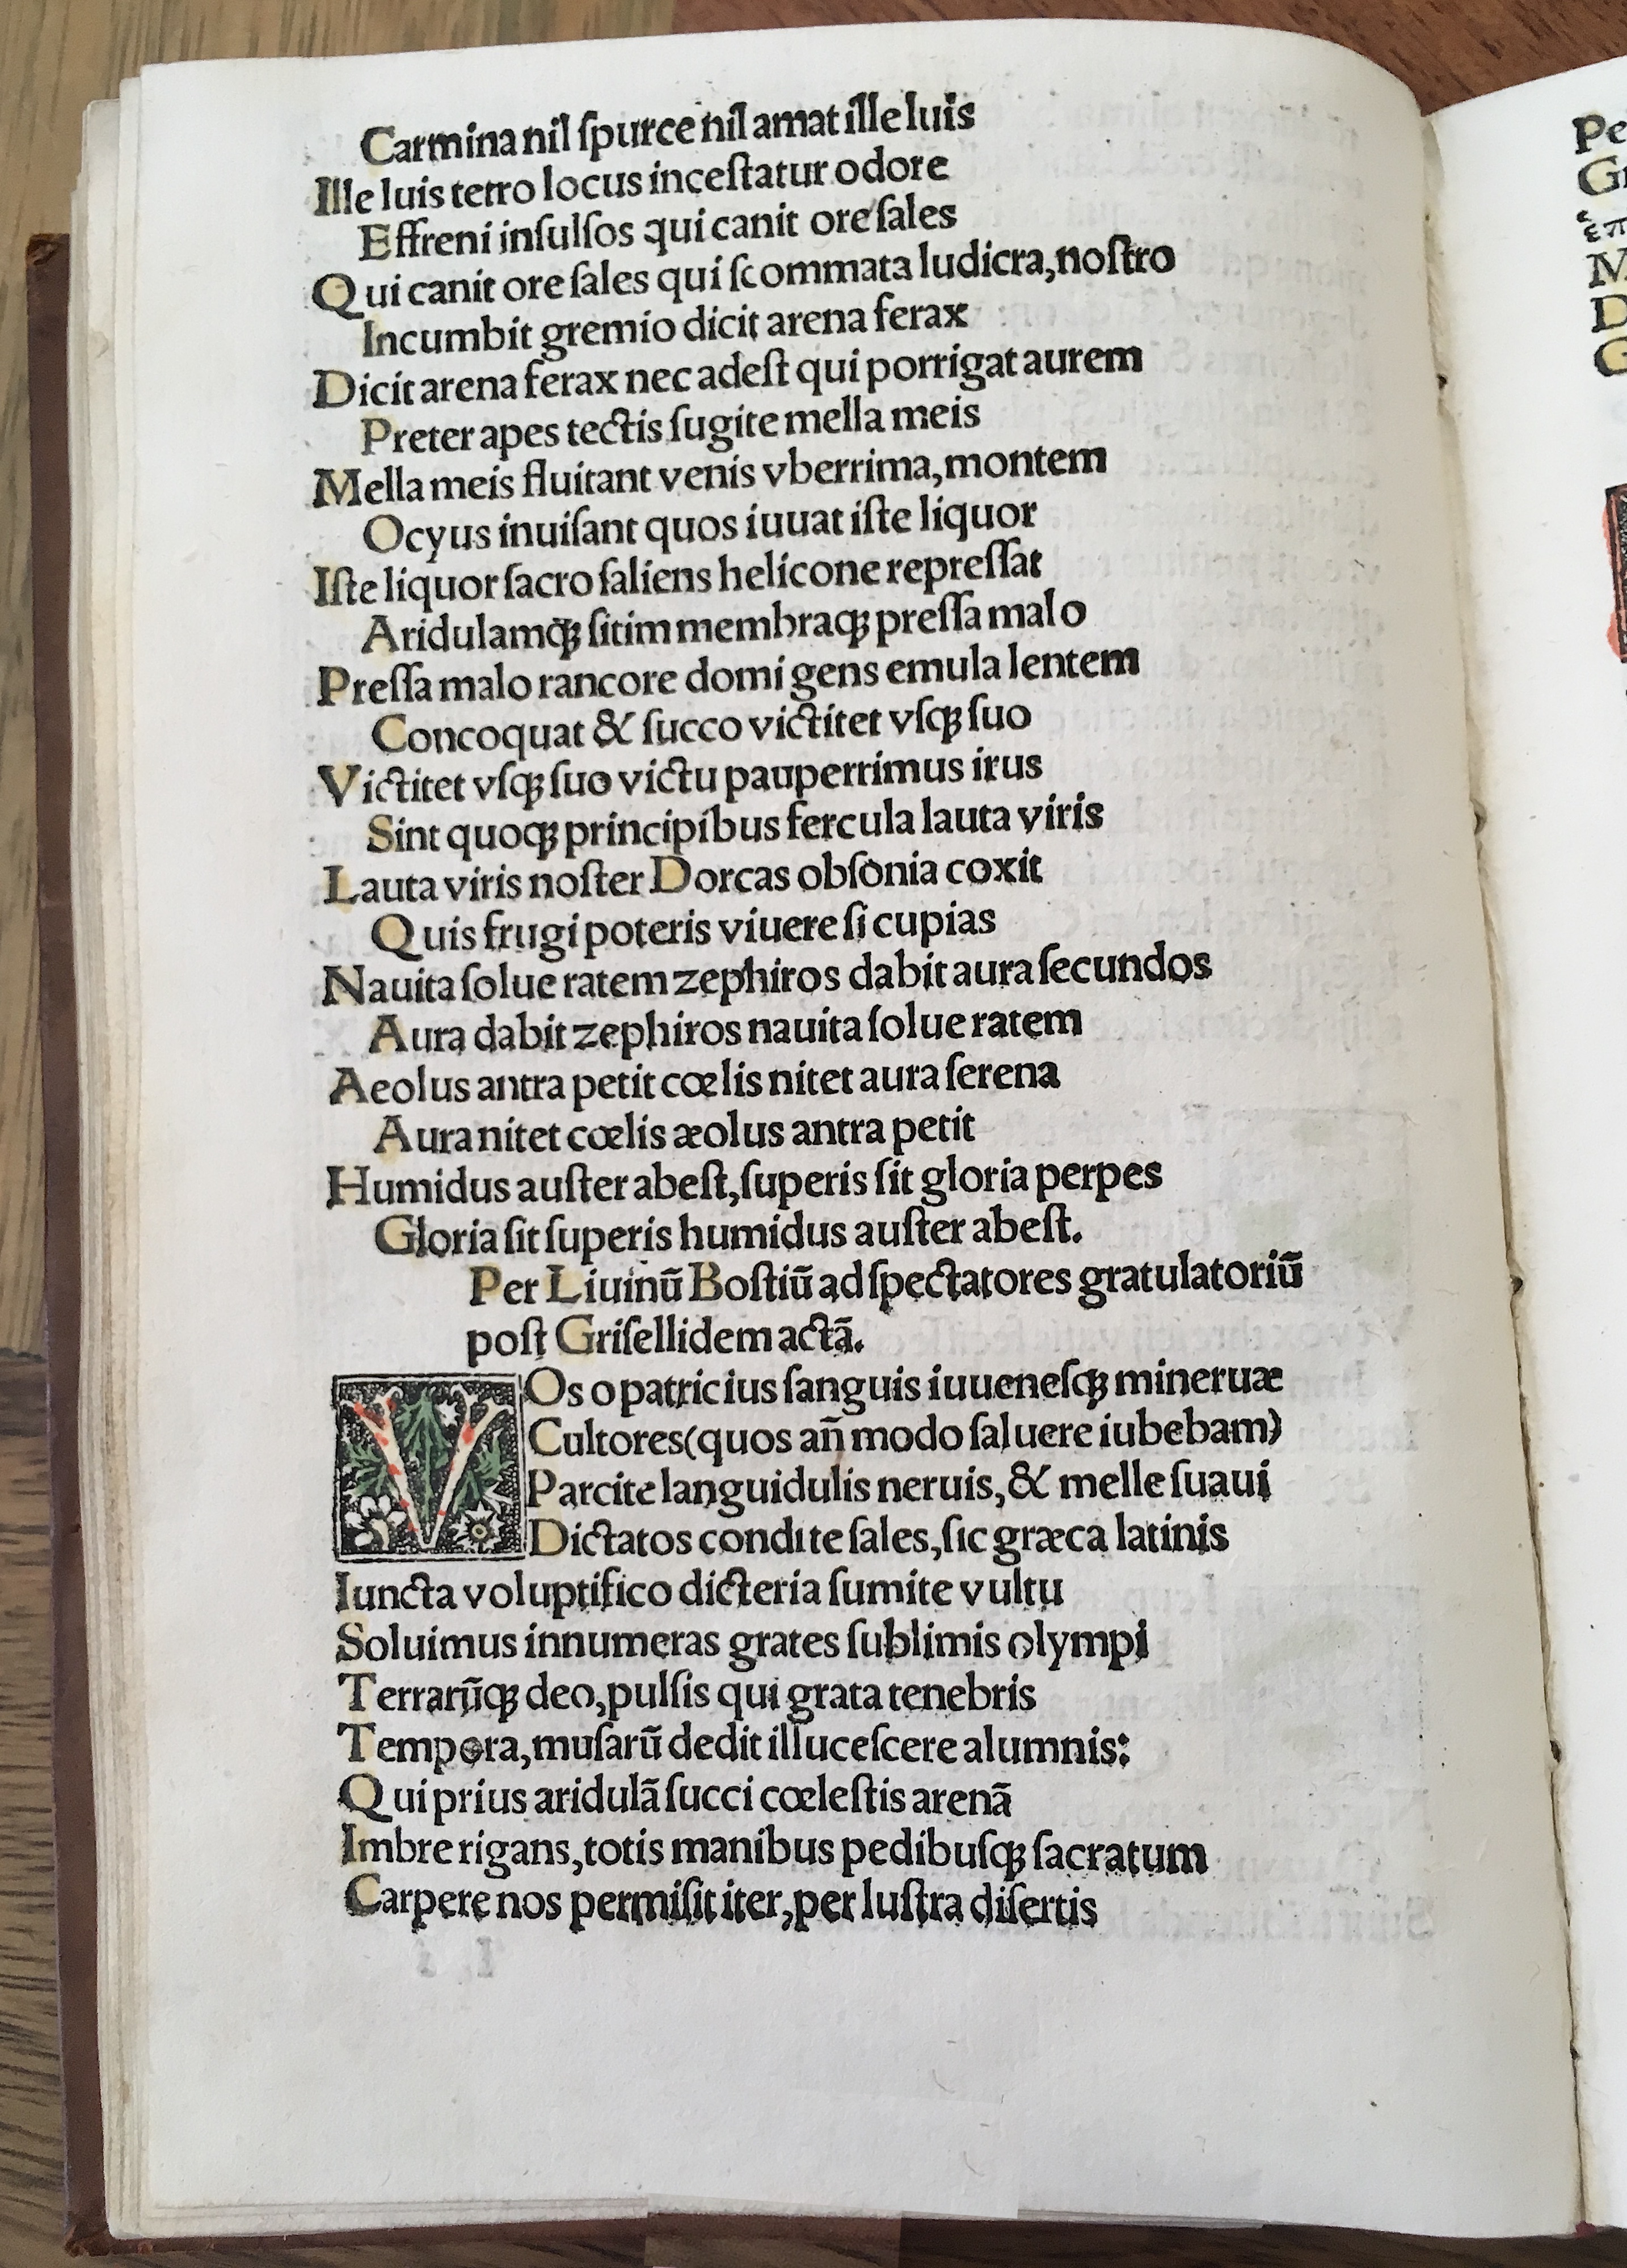 Carmina nil ſpurce nil amat ille luis
Ille luis tetro locus inceſtatur odore
Effreni inſulſos qui canit ore ſales
Qui canit ore ſales qui ſcommata ludicra, noſtro
Incumbit gremio dicit arena ferax
Dicit arena ferax nec adeſt qui porrigat aurem
Preter apes tectis ſugite mella meis
Mella meis fluitant venis vberrima, montem
Ocyus inuiſant quos iuuat iſte liquor
Iſte liquor ſacro ſaliens helicone repreſſat
Aridulamqꝫ ſitim membraqꝫ preſſa malo
Preſſa malo rancore domi gens emula lentem
Concoquat & ſucco victitet vſqꝫ ſuo
Victitet vſqꝫ ſuo victu pauperrimus irus
Sint quoqꝫ principibus fercula lauta viris
Lauta viris noſter Dorcas obſonia coxit
Quis frugi poteris viuere ſi cupias
Nauita ſolue ratem zephiros dabit aura ſecundos
Aura dabit zephiros nauita ſolue ratem
Aeolus antra petit cœlis nitet aura ſerena
Aura nitet cœlis æolus antra petit
Humidus auſter abeſt, ſuperis ſit gloria perpes
Gloria ſit ſuperis humidus auſter abeſt.
Per Liuinū Boſtiū ad ſpectatores gratulatoriū
poſt Griſellidem actā.
VOs o patricius ſanguis iuueneſqꝫ mineruæ
Cultores (quos añ modo ſaluere iubebam)
Parcite languidulis neruis, & melle ſuaui
Dictatos condite ſales, ſic græca latinis
Iuncta voluptifico dicteria ſumite vultu
Soluimus innumeras grates ſublimis olympi
Terrarūqꝫ deo, pulſis qui grata tenebris
Tempora, muſarū dedit illuceſcere alumnis:
Qui prius aridulā ſucci cœleſtis arenā
Imbre rigans, totis manibus pedibuſqꝫ ſacratum
Carpere nos permiſit iter, per luſtra diſertis
Pe
G
M
D
G